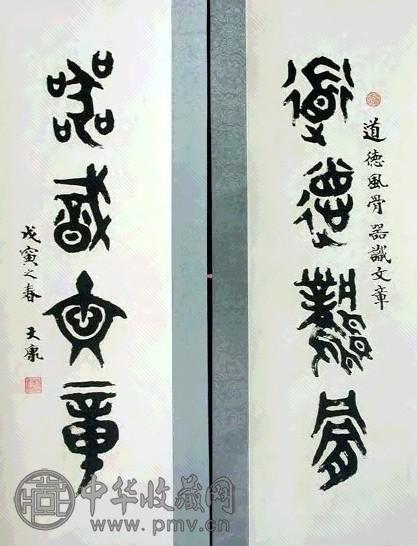 道德風骨
道德風骨器識文章
器識文章
戊寅之春 天康
中华收藏网
www.pmv.cn